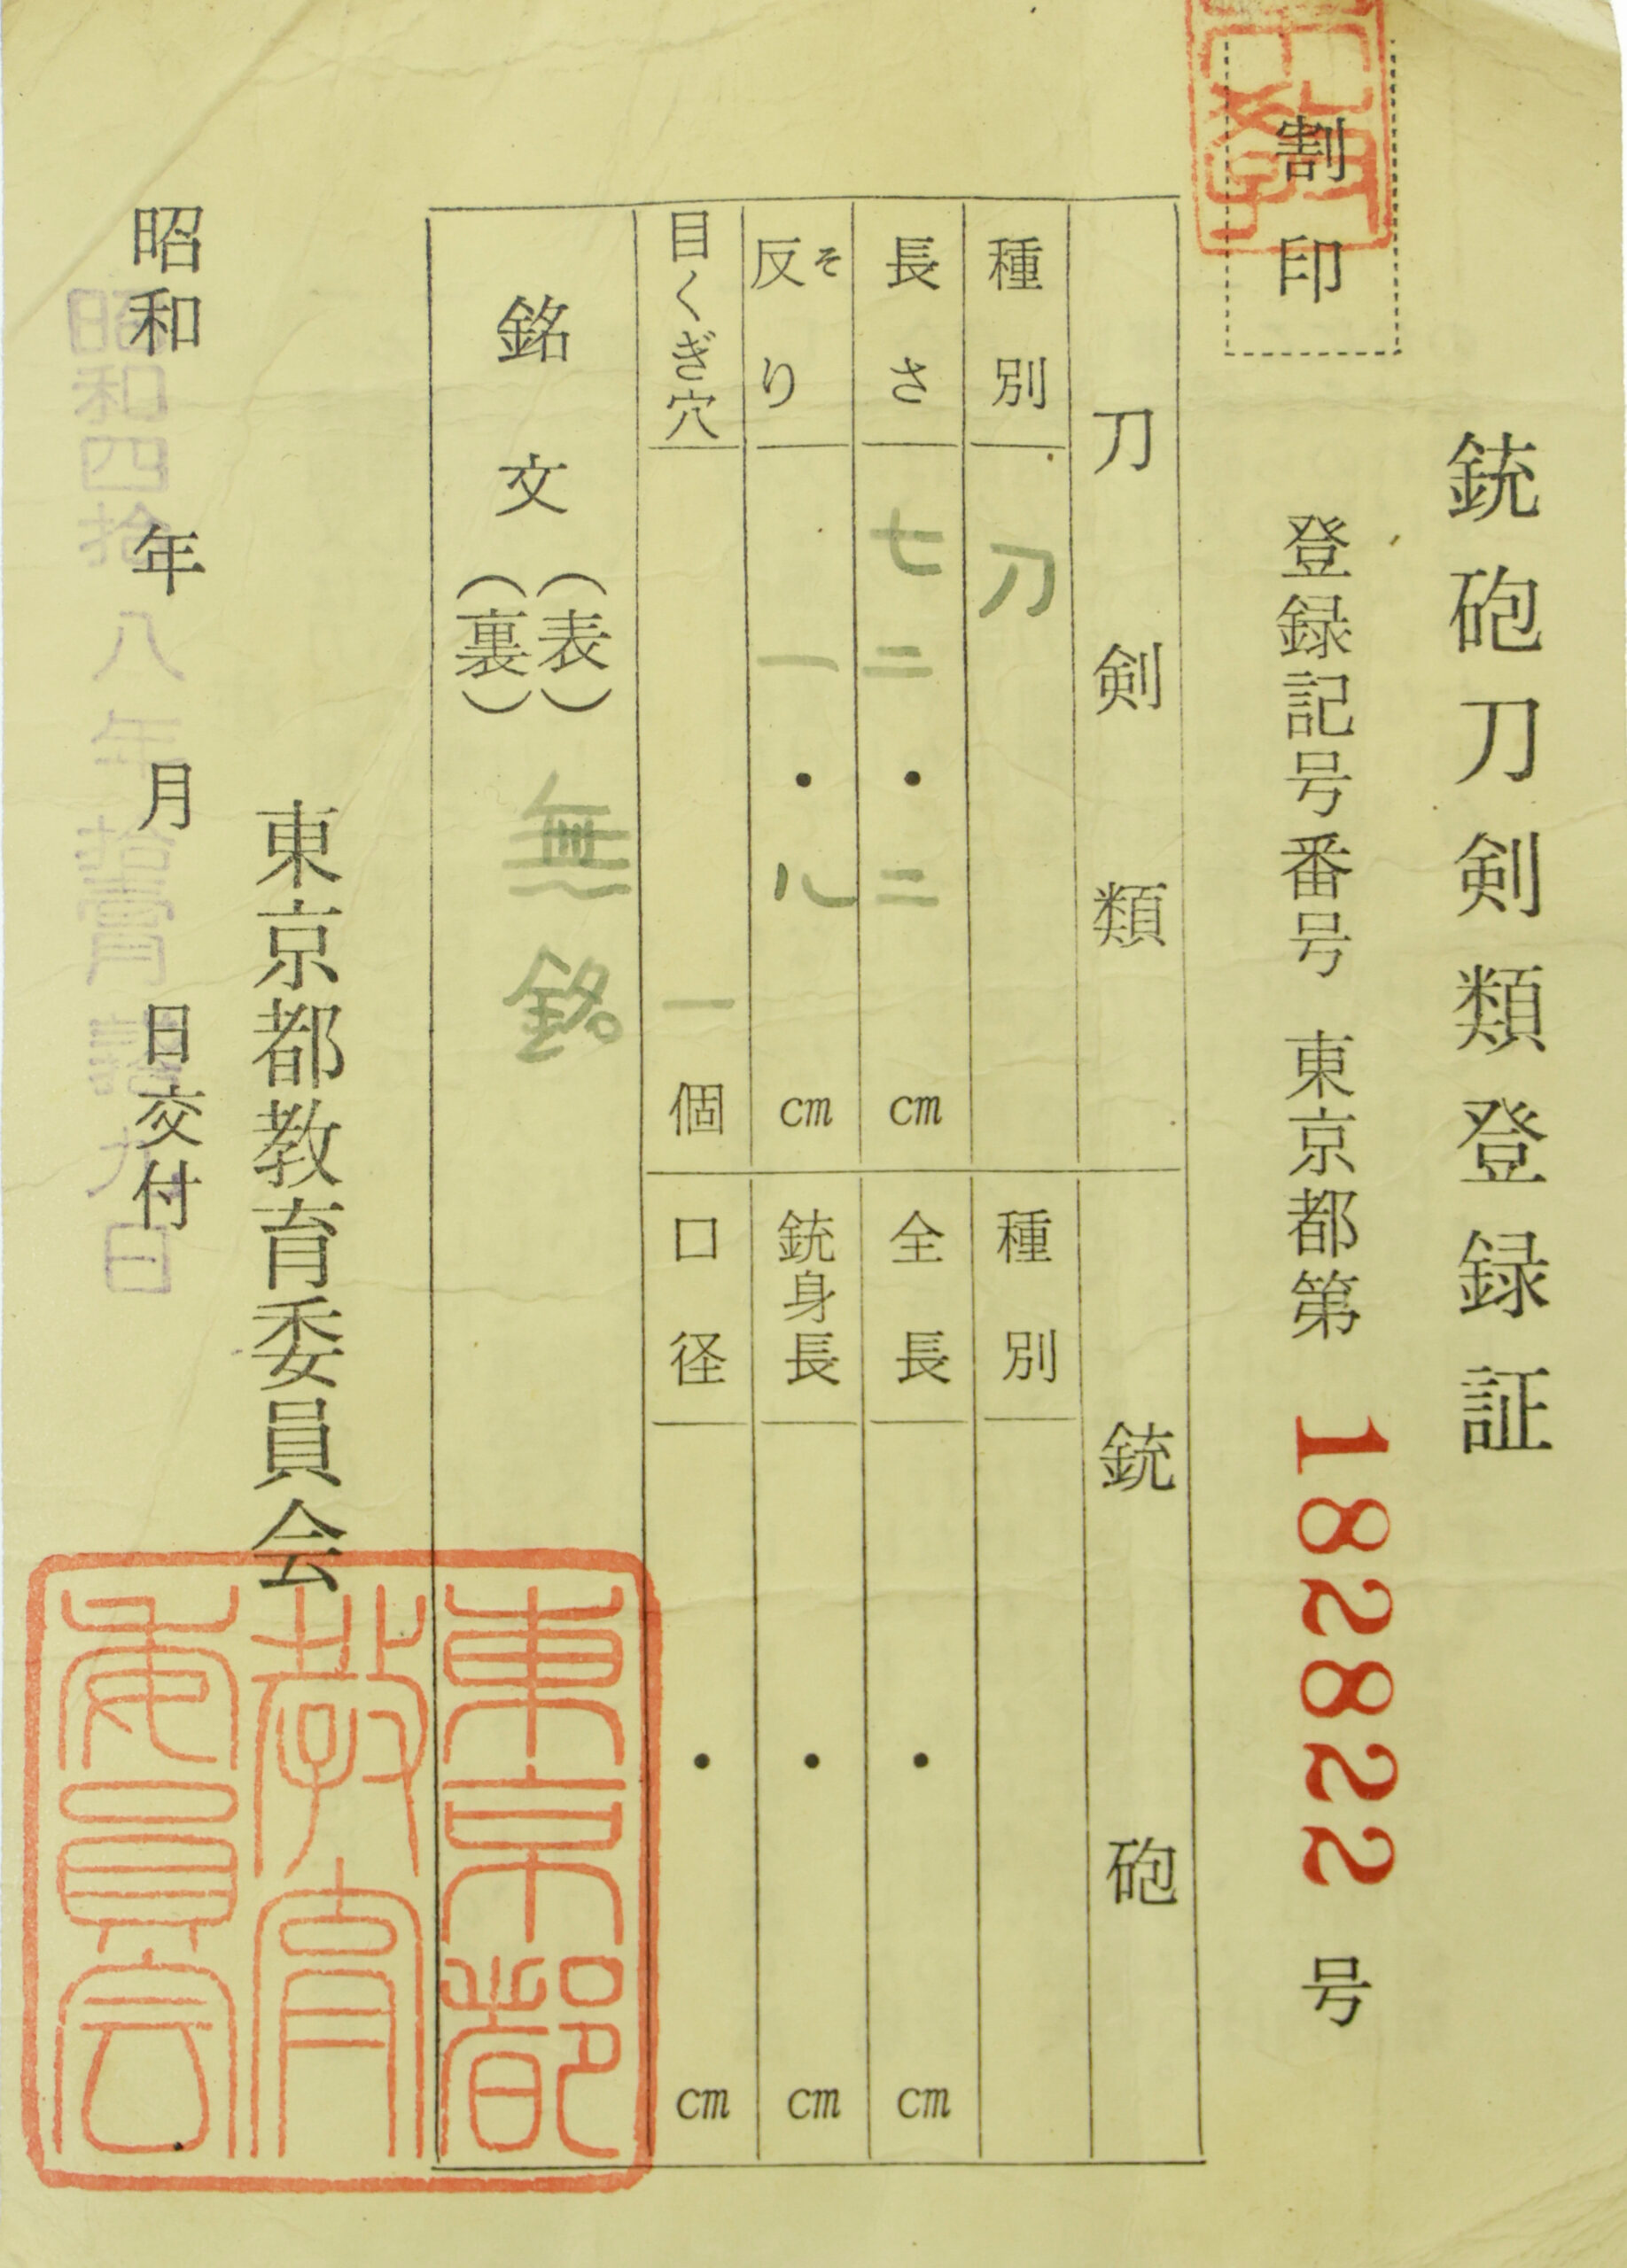 銃砲刀剣類登録証
割印
登録記号番号 東京都第 182822 号
刀剣類
種別 刀
長さ 七二・二 cm
反り そ 一・八 cm
目くぎ穴 一 個
銘文 (表) (裏) 無銘
銃砲
種別
全長 ・ cm
銃身長 ・ cm
口径 ・ cm
東京都教育委員会
昭和 年 月 日交付
昭和四拾八年拾 月 九日
東京都
教育
委員会